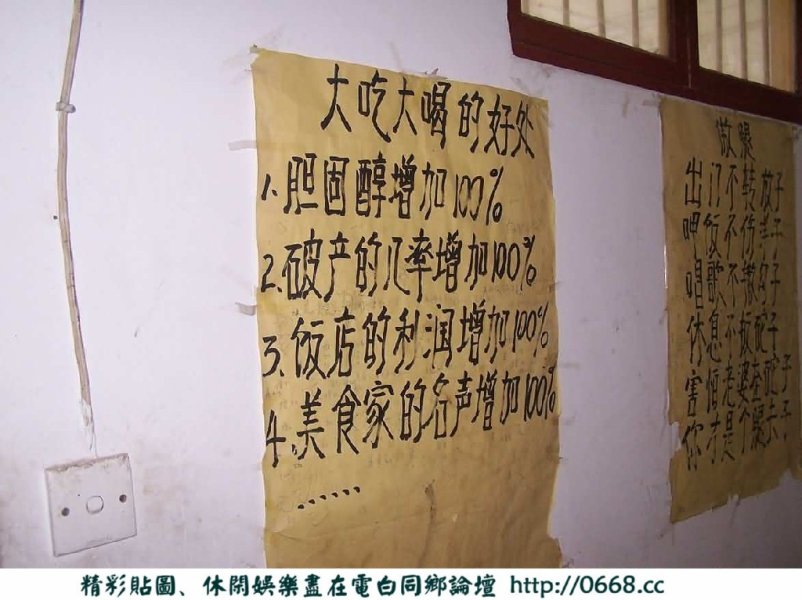 大吃大喝的好处
1.胆固醇增加100%
2.破产的几率增加100%
3.饭店的利润增加100%
4.美食家的名声增加100%
......
傲
出门不转
呷饭不伤
唱歌不撒
休息不扳砣子
害怕老婆
你才是个
精彩貼圖、休閑娛樂盡在電白同鄉論壇 http://0668.cc